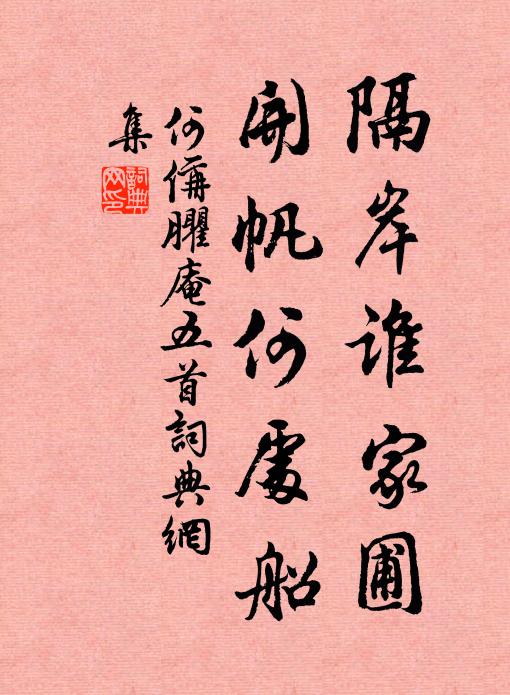 隔岸谁家圃
開帆何處船
何偁臞庵五首詞典網
集
詞典
网印